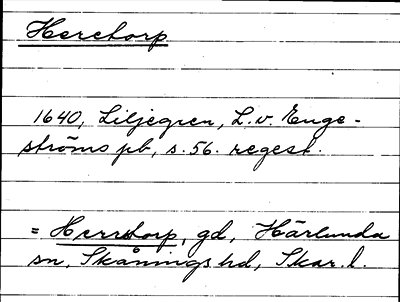 Heretorp
1640, Liljegren, L. v. Enge-
ströms pb, s. 56. regest.
= Herrtorp, gd, Härlunda
sn, Skånings hd, Skar. l.